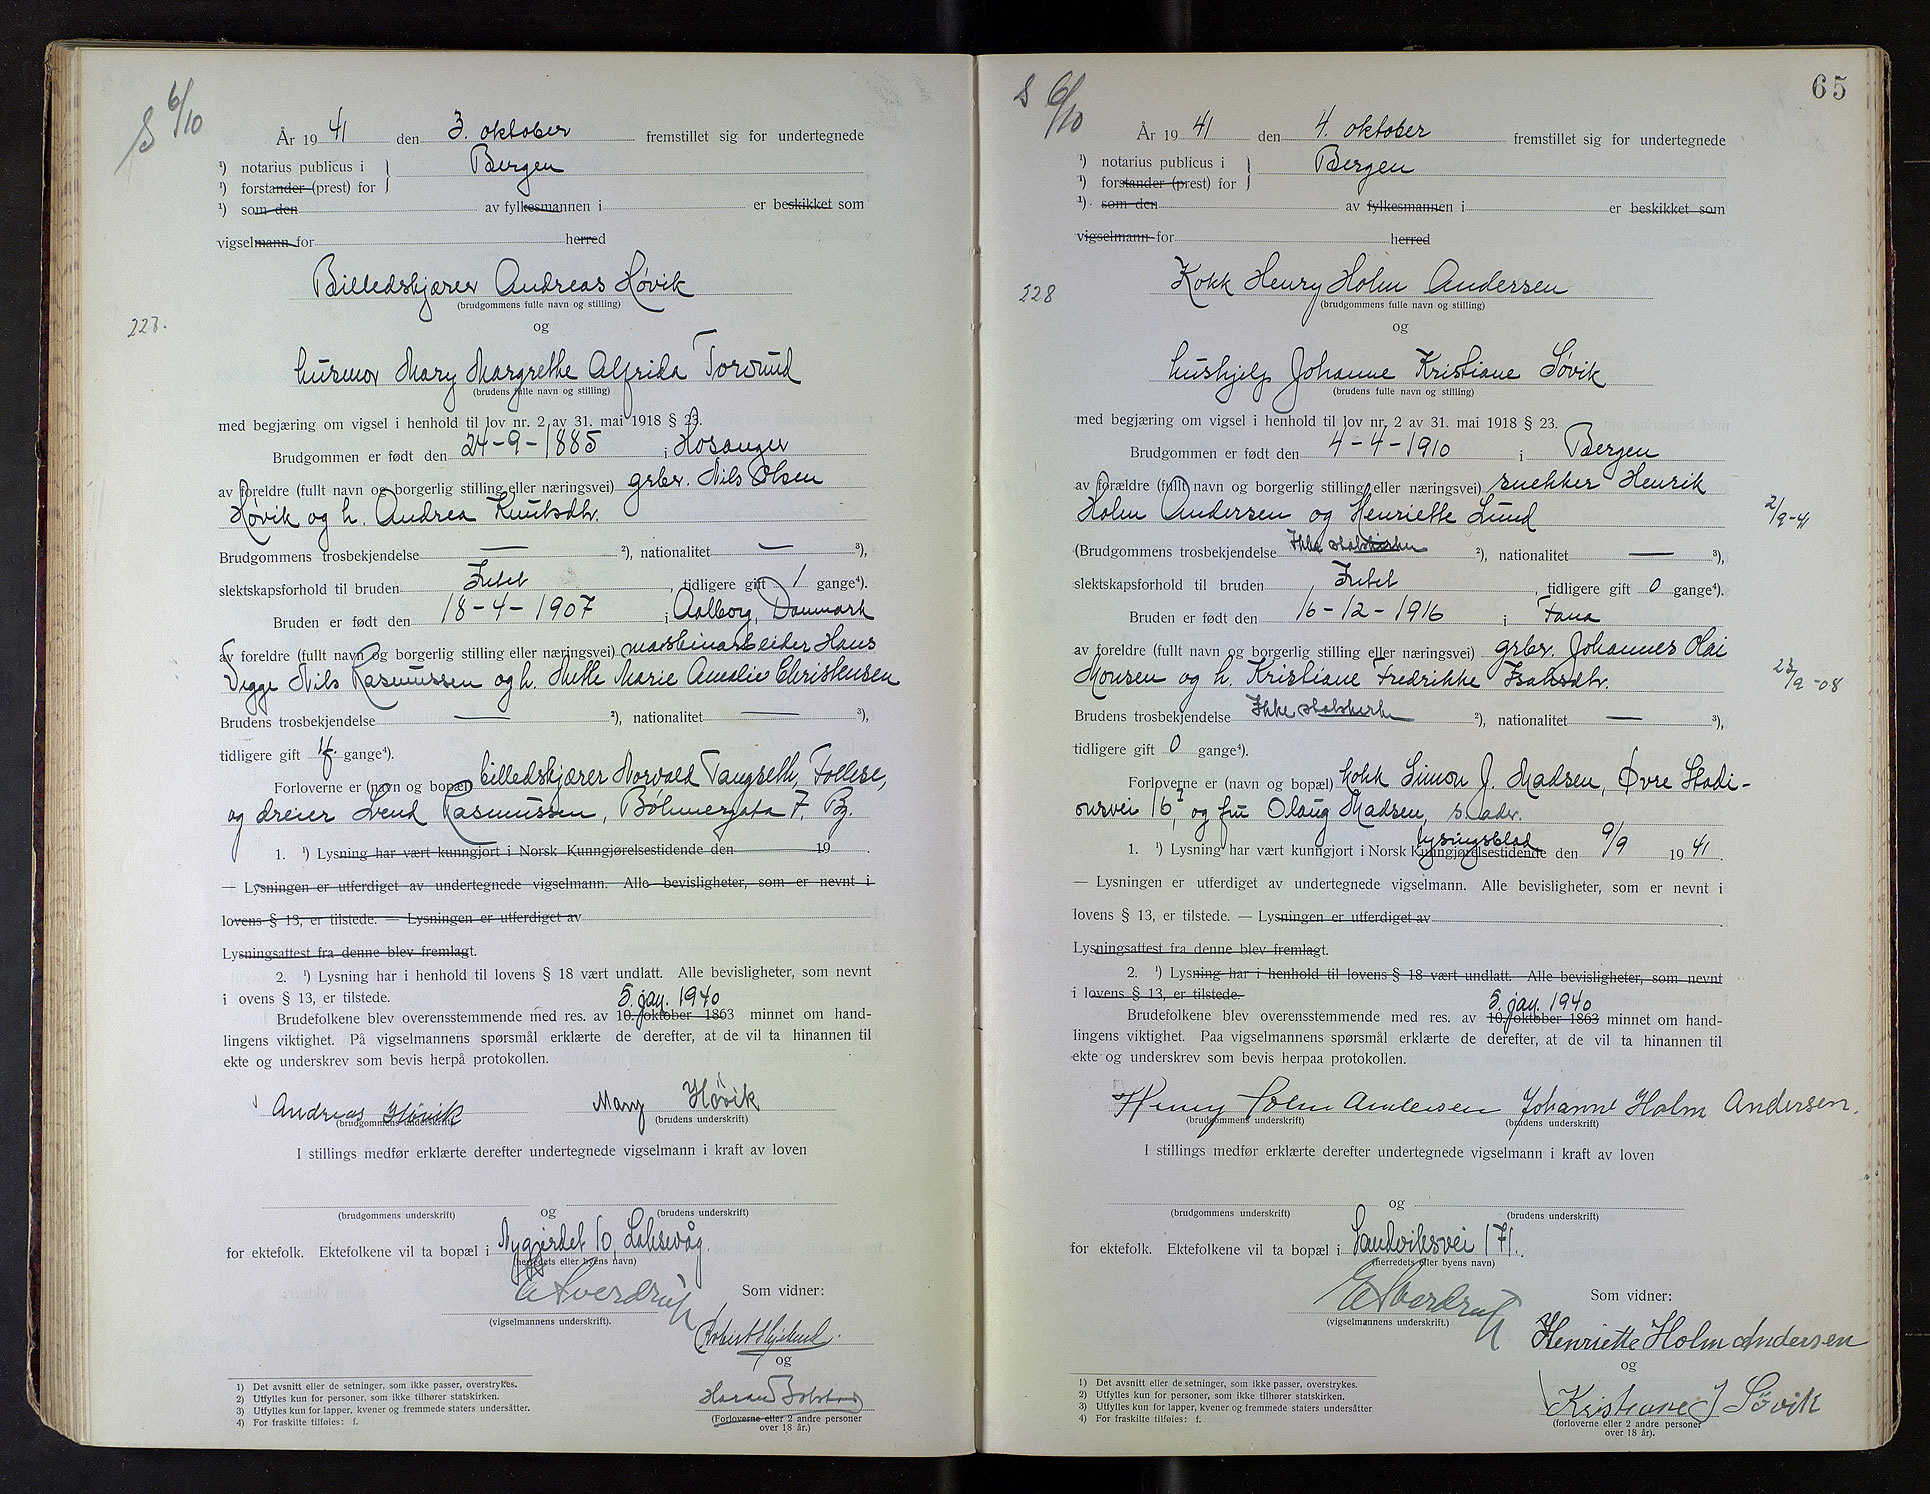 S 6/10
År 19 41 den 3. oktober fremstillet sig for undertegnede
¹) notarius publicus i } Bergen
¹) forstander (prest) for
¹) som den av fylkesmannen i er beskikket som
vigselmann for herred
Billedskjærer Andreas Høvik
(brudgommens fulle navn og stilling)
227.
og
husmor Mary Margrethe Alfrida Torvund
(brudens fulle navn og stilling)
med begjæring om vigsel i henhold til lov nr. 2 av 31. mai 1918 § 23.
Brudgommen er født den 24-9-1885 i Hosanger
av foreldre (fullt navn og borgerlig stilling eller næringsvei) grbr. Nils Olsen
Høvik og h. Andrea Knutsdtr.
Brudgommens trosbekjendelse — ²), nationalitet — ³),
slektskapsforhold til bruden Intet, tidligere gift 1 gange⁴).
Bruden er født den 18-4-1907 i Aalborg, Danmark
av foreldre (fullt navn og borgerlig stilling eller næringsvei) maskinarbeider Hans
Vigge Nils Rasmussen og h. Mette Marie Amalie Christensen
Brudens trosbekjendelse — ²), nationalitet — ³),
tidligere gift 1 f. gange⁴).
Forloverne er (navn og bopæl) billedskjærer Norvald Tangseth, Follese,
og dreier Svend Rasmussen, Bøhmergata 7, Bg.
1. ¹) Lysning har vært kunngjort i Norsk Kunngjørelsestidende den 19 .
— Lysningen er utferdiget av undertegnede vigselmann. Alle bevisligheter, som er nevnt i
lovens § 13, er tilstede. — Lysningen er utferdiget av
Lysningsattest fra denne blev fremlagt.
2. ¹) Lysning har i henhold til lovens § 18 vært undlatt. Alle bevisligheter, som nevnt
i ovens § 13, er tilstede.
5. jan. 1940
Brudefolkene blev overensstemmende med res. av 10. oktober 1863 minnet om hand-
lingens viktighet. På vigselmannens spørsmål erklærte de derefter, at de vil ta hinannen til
ekte og underskrev som bevis herpå protokollen.
Andreas Høvik Mary Høvik
(brudgommens underskrift) (brudens underskrift)
I stillings medfør erklærte derefter undertegnede vigselmann i kraft av loven
og
(brudgommens underskrift) (brudens underskrift)
for ektefolk. Ektefolkene vil ta bopæl i Nygjerdet 10, Laksevåg.
(herredets eller byens navn)
E Sverdrup
(vigselmannens underskrift).
Som vidner:
Robert
og
(Forloverne eller 2 andre personer
over 18 år.)
1) Det avsnitt eller de setninger, som ikke passer, overstrykes.
2) Utfylles kun for personer, som ikke tilhører statskirken.
3) Utfylles kun for lapper, kvener og fremmede staters undersåtter.
4) For fraskilte tilføies: f.
65
S 6/10
År 19 41 den 4. oktober fremstillet sig for undertegnede
¹) notarius publicus i } Bergen
¹) forstander (prest) for
¹) som den av fylkesmannen i er beskikket som
vigselmann for herred
Kokk Henry Holm Andersen
(brudgommens fulle navn og stilling)
228
og
hushjelp Johanne Kristiane Søvik
(brudens fulle navn og stilling)
med begjæring om vigsel i henhold til lov nr. 2 av 31. mai 1918 § 23.
Brudgommen er født den 4-4-1910 i Bergen
av forældre (fullt navn og borgerlig stilling eller næringsvei) snekker Henrik
Holm Andersen og Henriette Lund
2/9-41
(Brudgommens trosbekjendelse Ikke statskirken ²), nationalitet — ³),
slektskapsforhold til bruden Intet, tidligere gift 0 gange⁴).
Bruden er født den 16-12-1916 i Fana
av foreldre (fullt navn og borgerlig stilling eller næringsvei) grbr. Johannes Olai
Monsen og h. Kristiane Fredrikke Isaksdtr.
23/9-08
Brudens trosbekjendelse Ikke statskirken ²), nationalitet — ³),
tidligere gift 0 gange⁴).
Forloverne er (navn og bopæl) kokk Simon J. Madsen, Øvre Stadi-
onsvei 16², og fru Olaug Madsen, s. adr.
lysingsblad
1. ¹) Lysning har vært kunngjort i Norsk Kunngjørelsestidende den 9/9 19 41.
— Lysningen er utferdiget av undertegnede vigselmann. Alle bevisligheter, som er nevnt i
lovens § 13, er tilstede. — Lysningen er utferdiget av
Lysningsattest fra denne blev fremlagt.
2. ¹) Lysning har i henhold til lovens § 18 vært undlatt. Alle bevisligheter, som nevnt
i lovens § 13, er tilstede.
5. jan. 1940
Brudefolkene blev overensstemmende med res. av 10. oktober 1863 minnet om hand-
lingens viktighet. Paa vigselmannens spørsmål erklærte de derefter, at de vil ta hinannen til
ekte og underskrev som bevis herpaa protokollen.
Henry Holm Andersen Johanne Holm Andersen.
(brudgommens underskrift) (brudens underskrift)
I stillings medfør erklærte derefter undertegnede vigselmann i kraft av loven
og
(brudgommens underskrift) (brudens underskrift)
for ektefolk. Ektefolkene vil ta bopæl i Sandviksvei 171.
(herredets eller byens navn)
E Sverdrup
(vigselmannens underskrift.)
Som vidner:
Henriette Holm Andersen
og
Kristiane J Søvik
(forloverne eller 2 andre personer
over 18 år).
1) Det avsnitt eller de setninger, som ikke passer, overstrykes.
2) Utfylles kun for personer, som ikke tilhører statskirken.
3) Utfylles kun for lapper, kvener og fremmede staters undersåtter
4) For fraskilte tilføies: f.